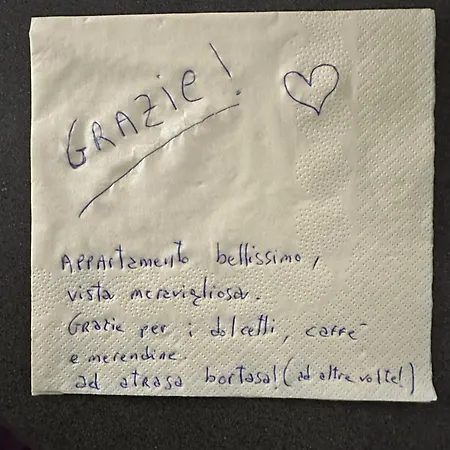 GRAZIE!
APPArtamento bellissimo,
vista meravigliosa.
GRAZIE per i dolcetti, caffè
e merendine.
ad atrasa bortasa! (ad altre volte!)